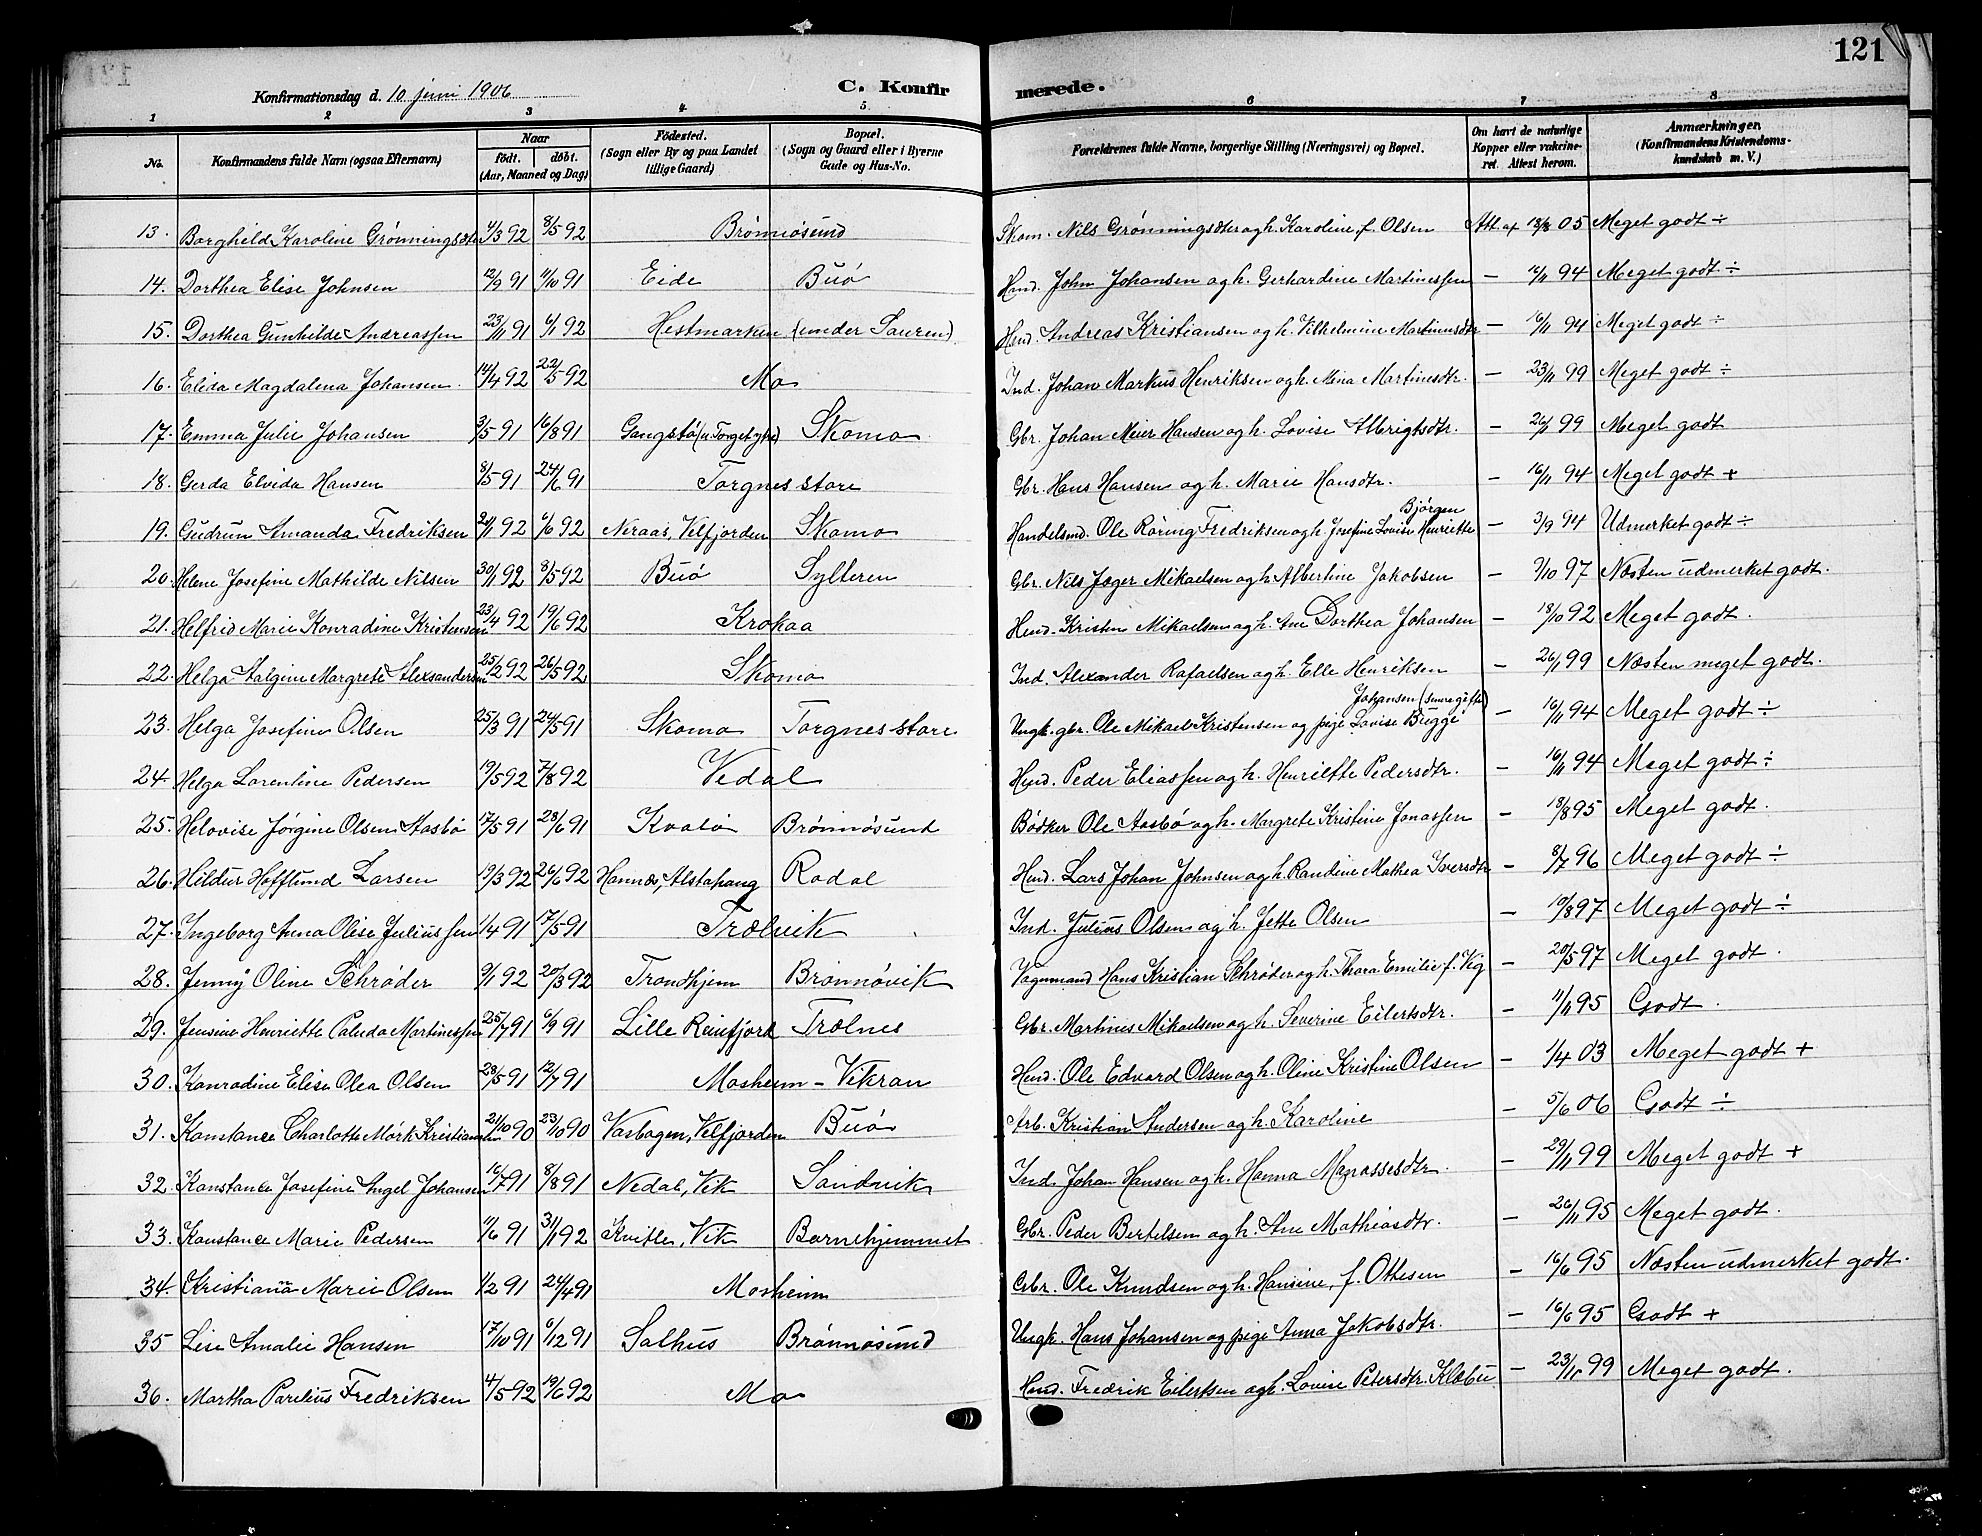 121
Konfirmationsdag d. 10 juni 1906
C. Konfirmerede.
1 2 3 4 5 6 7 8
No. Konfirmandens fulde Navn (ogsaa Efternavn) Naar født. døbt. (Aar, Maaned og Dag) Fødested. (Sogn eller By og paa Landet tillige Gaard) Bopæl. (Sogn og Gaard eller i Byerne Gade og Hus-No. Forældrenes fulde Navne, borgerlige Stilling (Næringsvei) og Bopæl. Om havt de naturlige Kopper eller vakcineret. Attest herom. Anmærkninger. (Konfirmandens Kristendomskundskab m. V.)
13. Borghild Karoline Grønningsæter 4/3 92 8/5 92 Brønnøsund Skom. Nils Grønningsæter og h. Karoline f. Olsen Att. af 18/8 05 Meget godt ÷
14. Dorthea Elise Johnsen 12/9 91 11/10 91 Eide Buø Hmd. John Johansen og h. Gerhardine Martinessen — 16/11 94 Meget godt ÷
15. Dorthea Gunhilde Andreassen 23/11 91 6/1 92 Hestmarken (under Sauren) Hmd. Andreas Kristiansen og h. Vilhelmine Martinusdtr — 16/11 94 Meget godt ÷
16. Elida Magdalena Johansen. 14/4 92 22/5 92 Mo Ind. Johan Markus Henriksen og h. Mina Martinesdtr. — 23/11 99 Meget godt ÷
17. Emma Julie Johansen 3/5 91 16/8 91 Gangstø (u. Torget yhe) Skomo Gbr. Johan Meier Hansen og h. Lovise Albrigtsdtr. — 26/11 99 Meget godt
18. Gerda Elvida Hansen 8/5 91 24/6 91 Torgnes store Gbr. Hans Hansen og h. Marie Hansdtr. — 16/11 94 Meget godt +
19. Gudrun Amanda Fredriksen 24/1 92 6/6 92 Neraas, Velfjorden Skomo Handelsmd. Ole Røring Fredriksen og h. Josefine Lovise Henriette Bjørgen — 3/9 94 Udmerket godt ÷
20. Helene Josefine Mathilde Nilsen 30/1 92 8/5 92 Buø Sylteren Gbr. Nils Jæger Mikaelsen og h. Albertine Jakobsen — 9/10 97 Næsten udmerket godt.
21. Helfrid Marie Konradine Kristensen 23/4 92 19/6 92 Krokaa Hmd. Kristen Mikaelsen og h. Ane Dorthea Johansen — 18/10 92 Meget godt.
22. Helga Aalgine Margrete Alexandersen 25/2 92 26/5 92 Skomo Ind. Alexander Rafaelsen og h. Elle Henriksen — 26/11 99 Næsten meget godt.
23. Helga Josefine Olsen 25/3 91 24/5 91 Skomo Torgnes store Ungk. gbr. Ole Mikael Kristensen og pige Lovise Bugge Johansen (senere gifte) — 16/11 94 Meget godt ÷
24. Helga Lorentine Pedersen 19/5 92 7/8 92 Vedal Hmd. Peder Eliassen og h. Henriette Pedersdtr. — 16/11 94 Meget godt ÷
25. Helovise Jørgine Olsen Aasbø 17/5 91 28/6 91 Kvalø Brønnøsund Bødker Ole Aasbø og h. Margrete Kristine Jonassen — 18/8 95 Meget godt.
26. Hildur Hofflund Larsen 19/3 92 26/6 92 Hannæs, Alstahaug Rodal Hmd. Lars Johan Johnsen og h. Randine Mathea Iversdtr — 8/7 96 Meget godt ÷
27. Ingeborg Anna Olise Juliussen 1/4 91 17/5 91 Trælvik Ind. Julius Olsen og h. Jette Olsen — 19/8 97 Meget godt ÷
28. Jenny Oline Schrøder 9/1 92 20/3 92 Trondhjem Brønnøvik Vognmand Hans Kristian Schrøder og h. Thora Emilie f. Vig — 20/5 97 Meget godt.
29. Jensine Henriette Paluda Martinessen 25/7 91 6/9 91 Lille Reinfjord Trælnes Gbr. Martinus Mikaelsen og h. Severine Eilertsdtr. — 11/11 95 Godt.
30. Konradine Elise Olea Olsen 28/5 91 12/7 91 Mosheim - Vikran Hmd. Ole Edvard Olsen og h. Oline Kristine Olsen — 1/4 03 Meget godt +
31. Konstance Charlotte Mørk Kristiansen 21/10 90 23/10 90 Vasbogen, Velfjorden Buø Arb. Kristian Andersen og h. Karoline — 5/6 06 Godt ÷
32. Konstance Josefine Angel Johansen 16/7 91 8/8 91 Nedal, Vik Sandvik Ind. Johan Hansen og h. Hanna Manassesdtr. — 29/11 99 Meget godt +
33. Konstance Marie Pedersen 11/6 91 31/1 92 Kvitle, Vik Barnehjemmet Gbr. Peder Bertelsen og h. Ane Mathiasdtr. — 26/11 95 Meget godt.
34. Kristiana Marie Olsen 1/2 91 24/4 91 Mosheim Gbr. Ole Knudsen og h. Hansine, f. Ottesen — 16/6 95 Næsten udmerket godt.
35 Lise Amalie Hansen 17/10 91 6/12 91 Salhus Brønnøsund Ungk. Hans Johansen og pige Anna Jakobsdtr. — 16/6 95 Godt +
36. Martha Parelius Fredriksen 4/5 92 19/6 92 Mo Hmd. Fredrik Eilertsen og h. Lovise Petersdtr. Klæbu — 23/11 99 Meget godt.